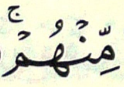 مِّنْهُمْۚ